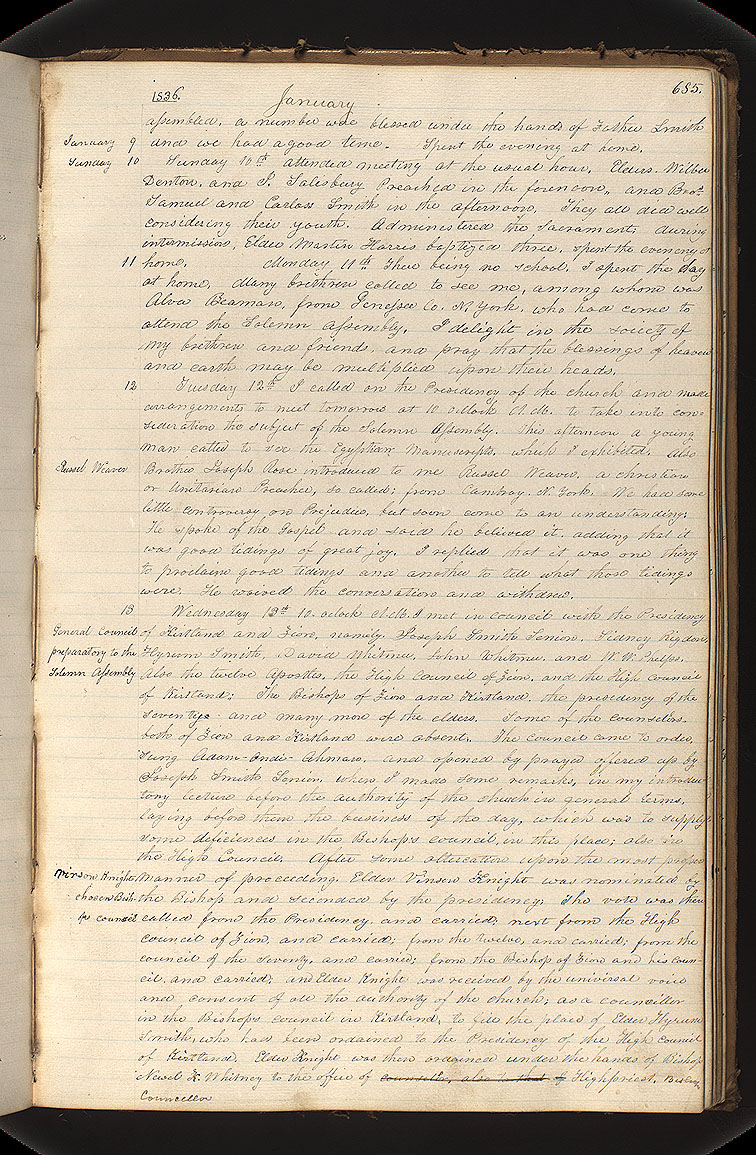 1836.
January
685.
assembled, a number were blessed under the hands of Father Smith
January 9 and we had a good time. Spent the evening at home.
Sunday 10 Sunday 10th attended meeting at the usual hour, Elders. Wilber
Denton, and J. Salisbury Preached in the forenoon, and Brors
Samuel and Carloss Smith in the afternoon, They all did well
considering their youth. Administered the Sacrament, during
intermission, Elder Martin Harris baptized three, spent the evening at
11 home. Monday 11th There being no school, I spent the day
at home, Many brethren called to see me, among whom was
Alva Beaman, from Genessee Co. N. York, who had come to
attend the Solemn Assembly. I delight in the society of
my brethren and friends, and pray that the blessings of heaven
and earth may be multiplied upon their heads.
12 Tuesday 12th I called on the Presidency of the church and made
arrangements to meet tomorrow at 10 o.clock A. M. to take into con-
sideration the subject of the Solemn Assembly. This afternoon a young
man called to see the Egyptian Manuscripts, which I exhibited. also
Russel Weaver Brother Joseph Rose introduced to me Russel Weaver, a christian
or Unitarian Preacher, so called, from Cambray, N. York. We had some
little controversy on Prejudice, but soon come to an understanding;
He spoke of the Gospel and said he believed it, adding that it
was good tidings of great joy. I replied that it was one thing
to proclaim good tidings and another to tell what those tidings
were. He waived the conversation and withdrew.
13 Wednesday 13th 10. oclock A.M. I met in council with the Presidency
General Council of Kirtland and Zion, namely, Joseph Smith Senior, Sidney Rigdon,
preparatory to the Hyrum Smith, David Whitmer, John Whitmer, and W. W. Phelps.
Solemn Assembly Also the twelve Apostles, the High council of Zion, and the High Council
of Kirtland; The Bishops of Zion and Kirtland, the presidency of the
Seventies. and many more of the elders. Some of the counselors,
both of Zion and Kirtland were absent. The council came to order,
sung Adam-Ondi-Ahman, and opened by prayer offered up by
Joseph Smith Senior, when I made some remarks, in my introduc-
tory lecture before the authority of the church in general terms,
laying before them the business of the day, which was to supply
some deficiences in the Bishop's council, in this place; also in
the High Council. After some altercation upon the most proper
Vinson Knight manner of proceeding. Elder Vinson Knight was nominated by
chosen Bish- the Bishop and seconded by the presidency, The vote was then
ps council called from the Presidency, and carried; next from the High
council of Zion, and carried; from the twelve, and carried; from the
council of the Seventy, and carried; from the Bishop of Zion and his coun-
cil, and carried; and Elder Knight was received by the universal voice
and consent of all the authority of the church; as a councillor
in the Bishop's council in Kirtland, to fill the place of Elder Hyrum
Smith, who has been ordained to the Presidency of the High council
of Kirtland. Elder Knight was then ordained under the hands of Bishop
Newel K. Whitney to the office of counseller, also to that of Highpriest, Bishop
Councellor